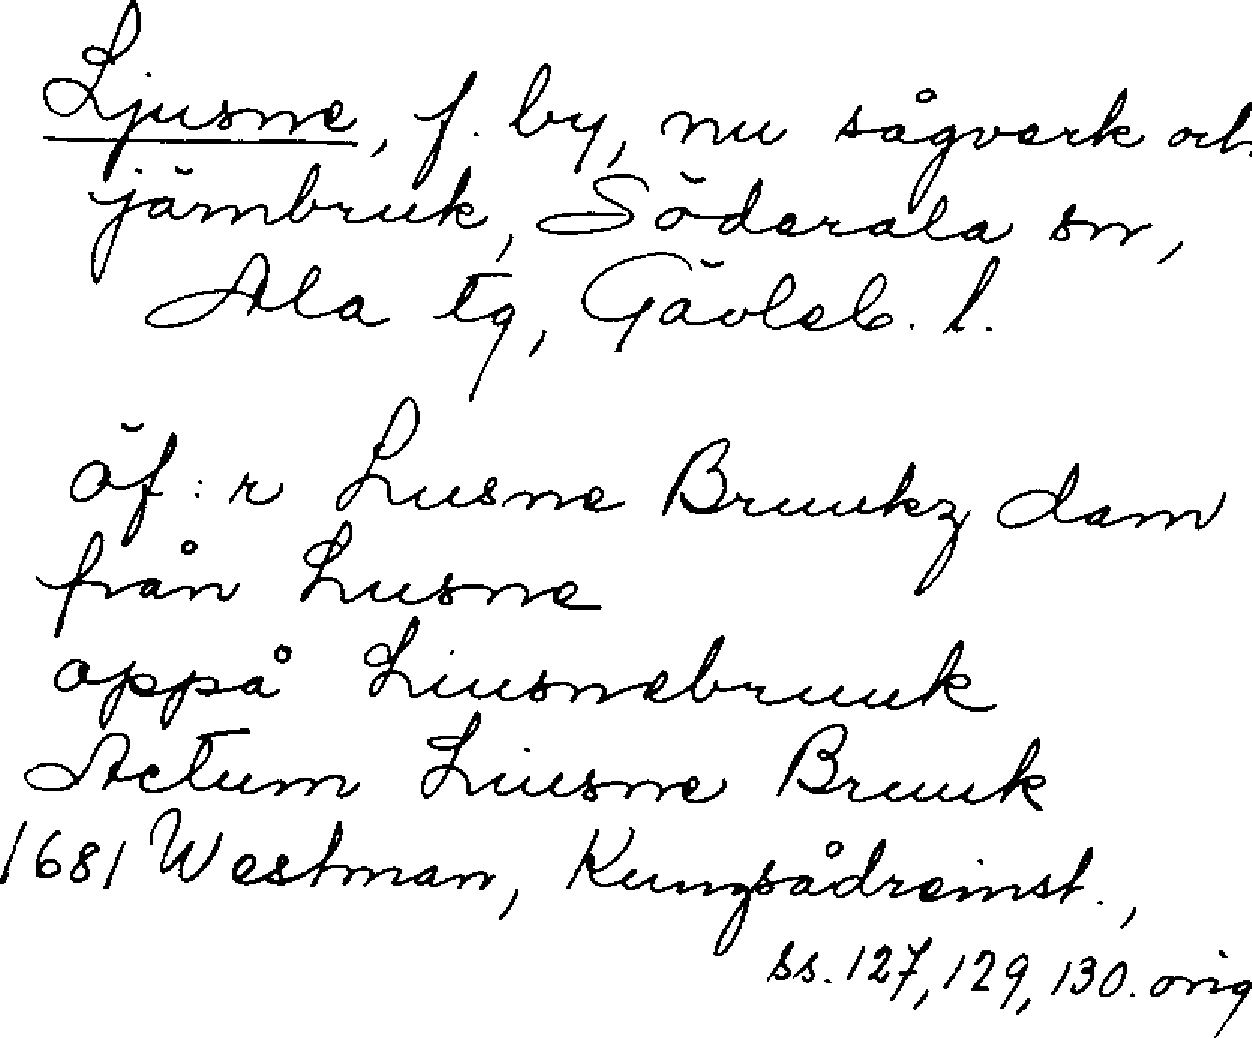 Ljusne, f. by, nu sågverk och
järnbruk, Söderala sn,
Ala tg, Gävleb. l.
äf:r Lusne Bruukz dam
från Lusne
oppå Liusnebruuk
Actum Liusne Bruuk
1681 Westman, Kungsådreinst.,
ss. 127, 129, 130. orig